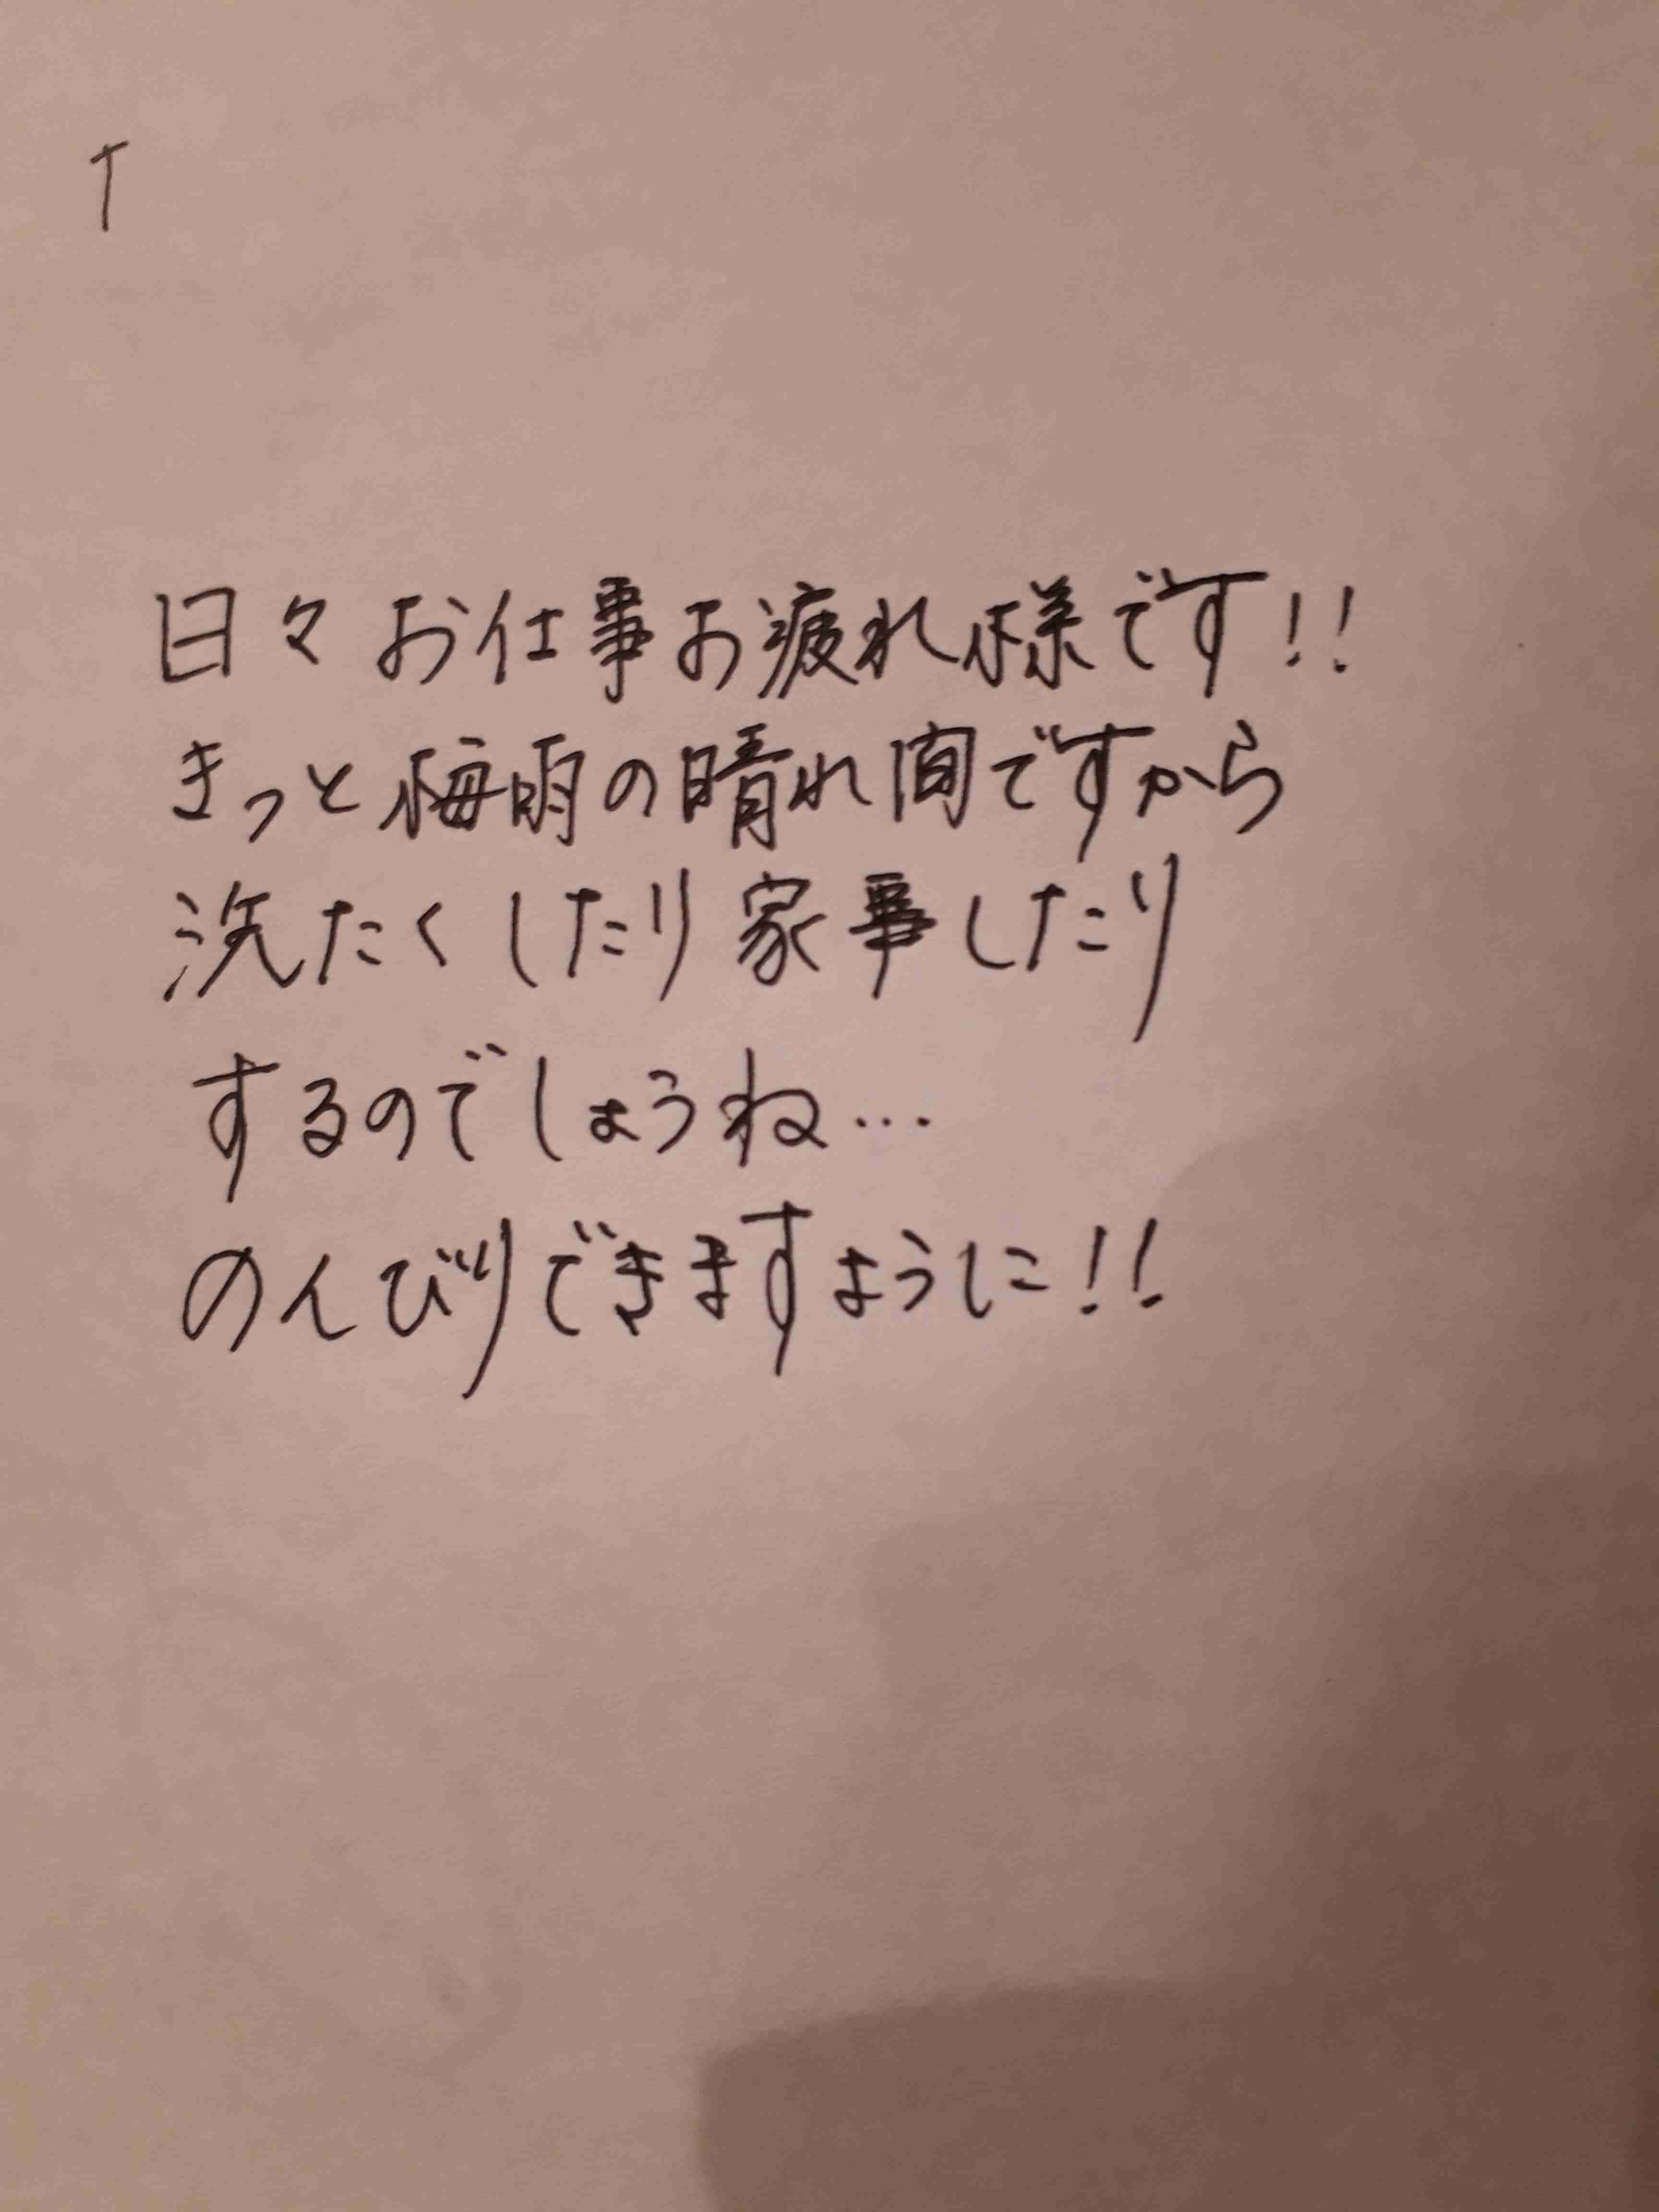 日々お仕事お疲れ様です!!
きっと梅雨の晴れ間ですから
洗たくしたり家事したり
するのでしょうね…
のんびりできますように!!